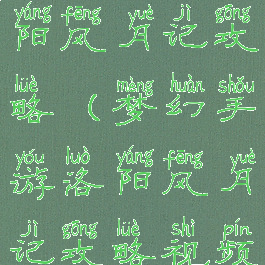 yáng fēng yuè jì gōng
阳风月记攻
lüè mèng huàn shǒu
略(梦幻手
yóu luò yáng fēng yuè
游洛阳风月
jì gōng lüè shì pín
记攻略视频